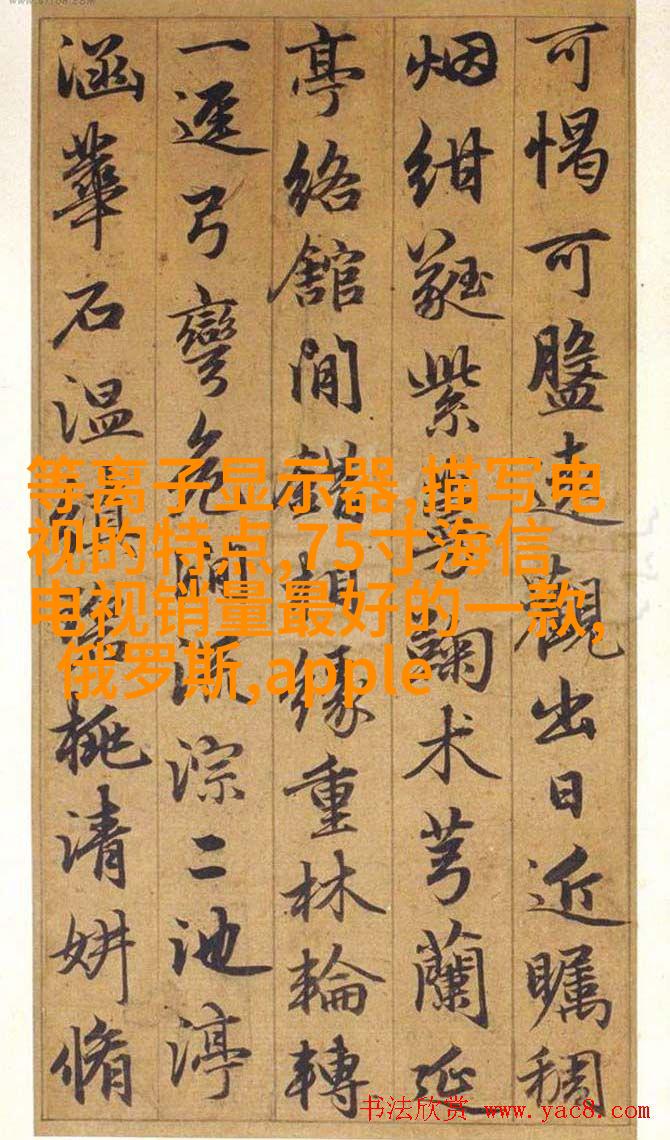 可愒可盤遠觀出日近矚稠
烟紺蕤紫术芎蘭延
亭絡館間錯相緣重林輪轉
一逕弓彎危澗派淙二池渟
涵華石温桃清妍脩
等离子显示器,描写电
视的特点,75寸海信
电视销量最好的一款,
俄罗斯,apple
书法欣赏 www.yac8.com